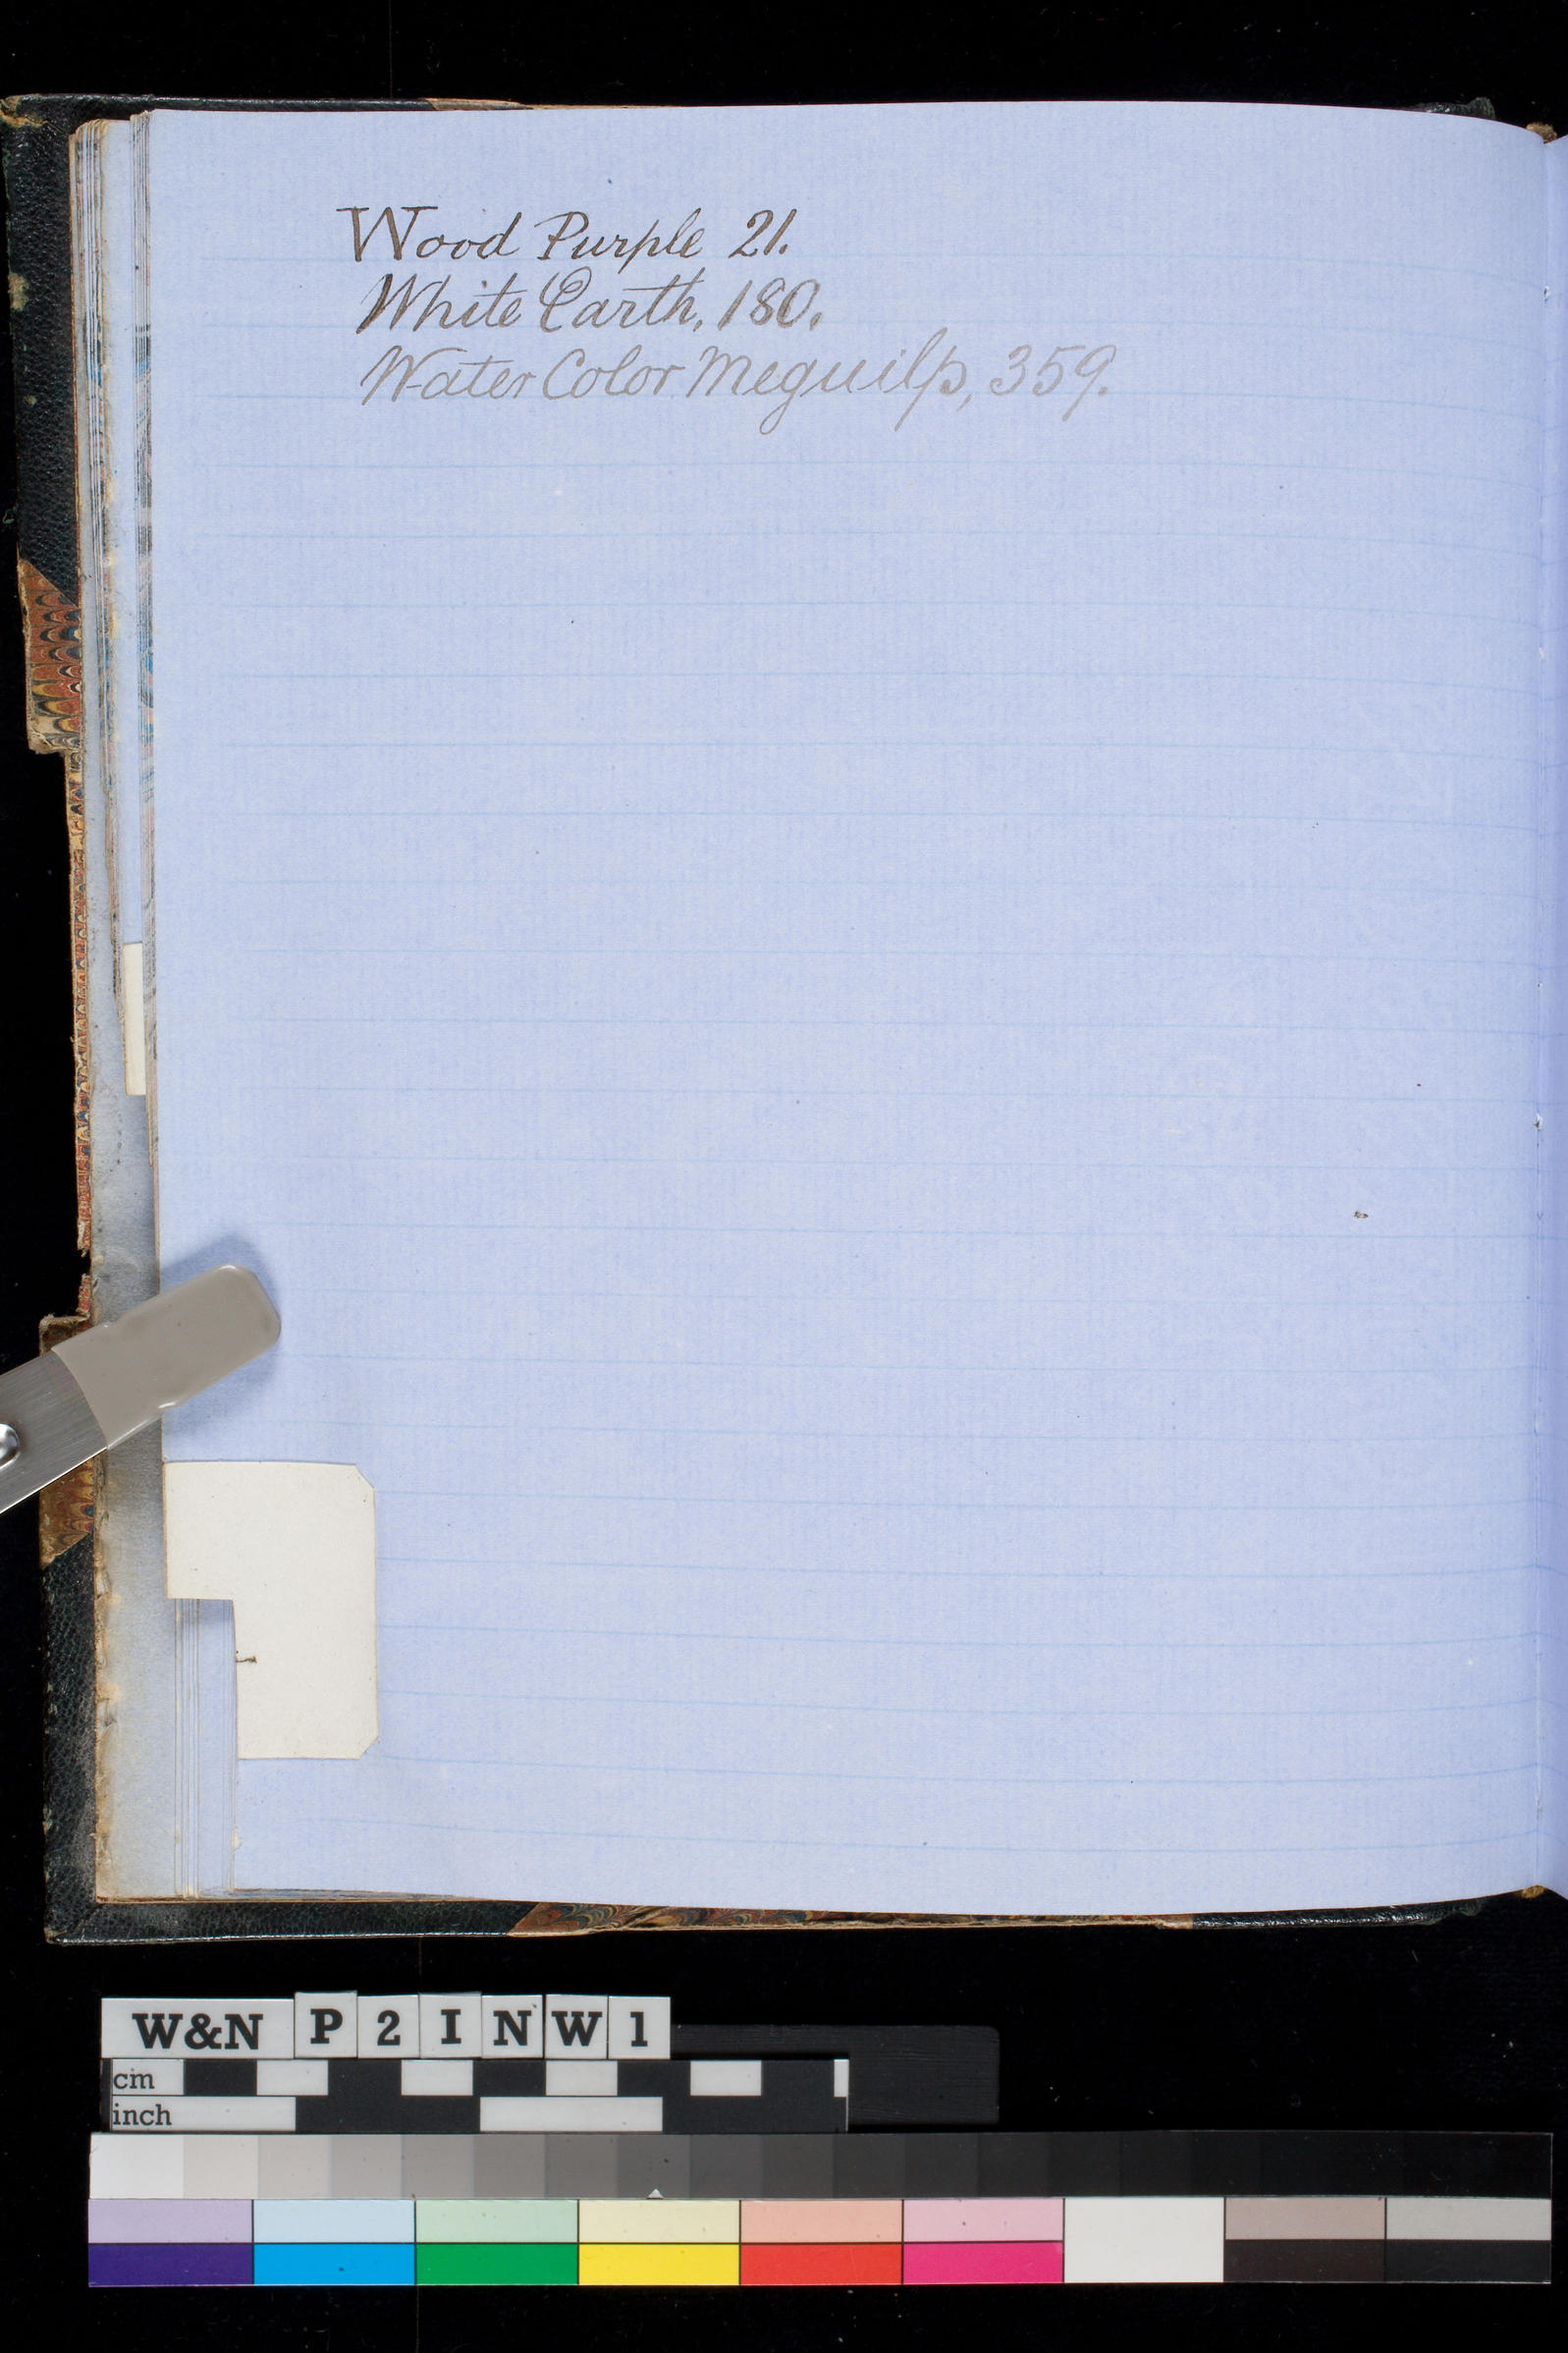 Wood Purple 21.
White Earth, 180.
Water Color Meguilp, 359.
W&N P 2 I N W 1
cm
inch